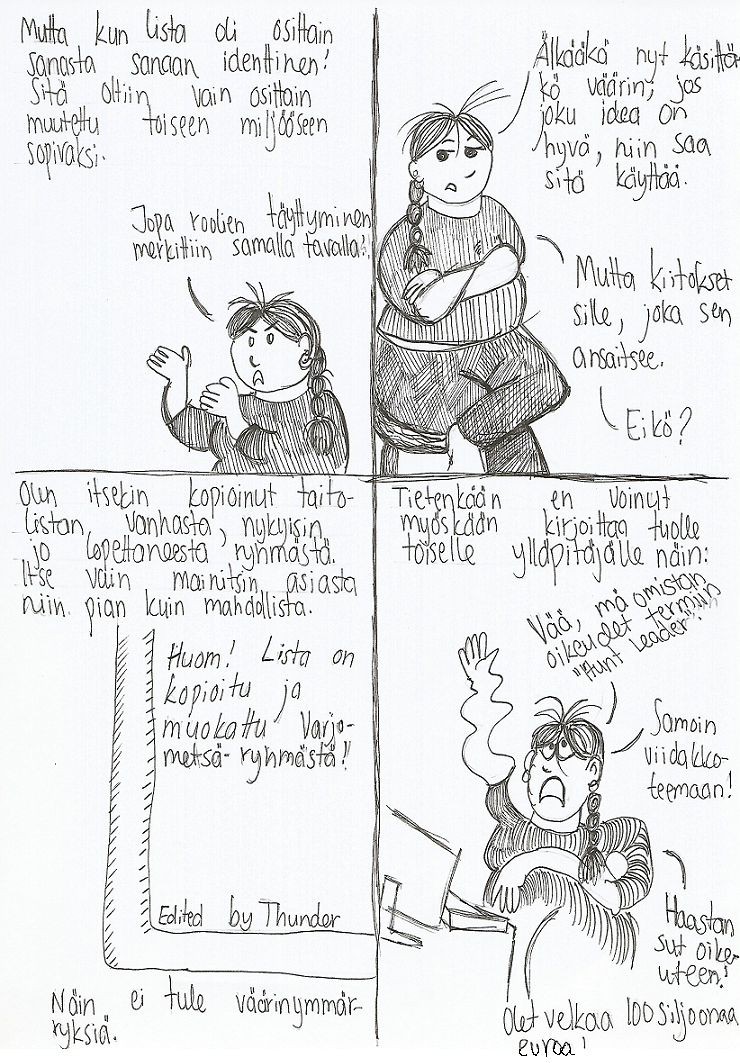 Mutta kun lista oli osittain
sanasta sanaan identtinen!
Sitä oltiin vain osittain
muutettu toiseen miljööseen
sopivaksi.
Jopa roolien täyttyminen
merkittiin samalla tavalla!
Älkääkö nyt käsittä-
kö väärin; jos
joku idea on
hyvä, niin saa
sitä käyttää.
Mutta kiitokset
sille, joka sen
ansaitsee.
Eikö?
Olen itsekin kopioinut taito-
listan vanhasta, nykyisin
jo lopettaneesta ryhmästä.
Itse vain mainitsin asiasta
niin pian kuin mahdollista.
Huom! Lista on
kopioitu ja
muokattu Varjo-
metsä-ryhmästä!
Edited by Thunder
Näin ei tule väärinymmär-
ryksiä.
Tietenkään en voinut
myöskään kirjoittaa tuolle
toiselle ylläpitäjälle näin:
Vää, mä omistan
oikeudet termiin
"Hunt Leader"!
Samoin
viidakko-
teemaan!
Haastan
sut oike-
uteen!
Olet velkaa 100 siljoonaa
euroa!